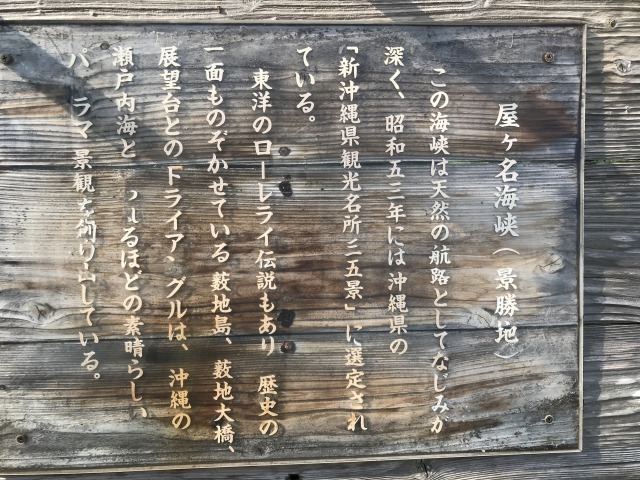 屋ヶ名海峡(景勝地)
この海峡は天然の航路としてなじみが
深く、昭和五三年には沖縄県の
「新沖縄県観光名所三五景」に選定され
ている。
東洋のローレライ伝説もあり 歴史の
一面ものぞかせている藪地島、藪地大橋、
展望台とのトライアングルは、沖縄の
瀬戸内海と るほどの素晴らしい
パ ラマ景観を 出している。